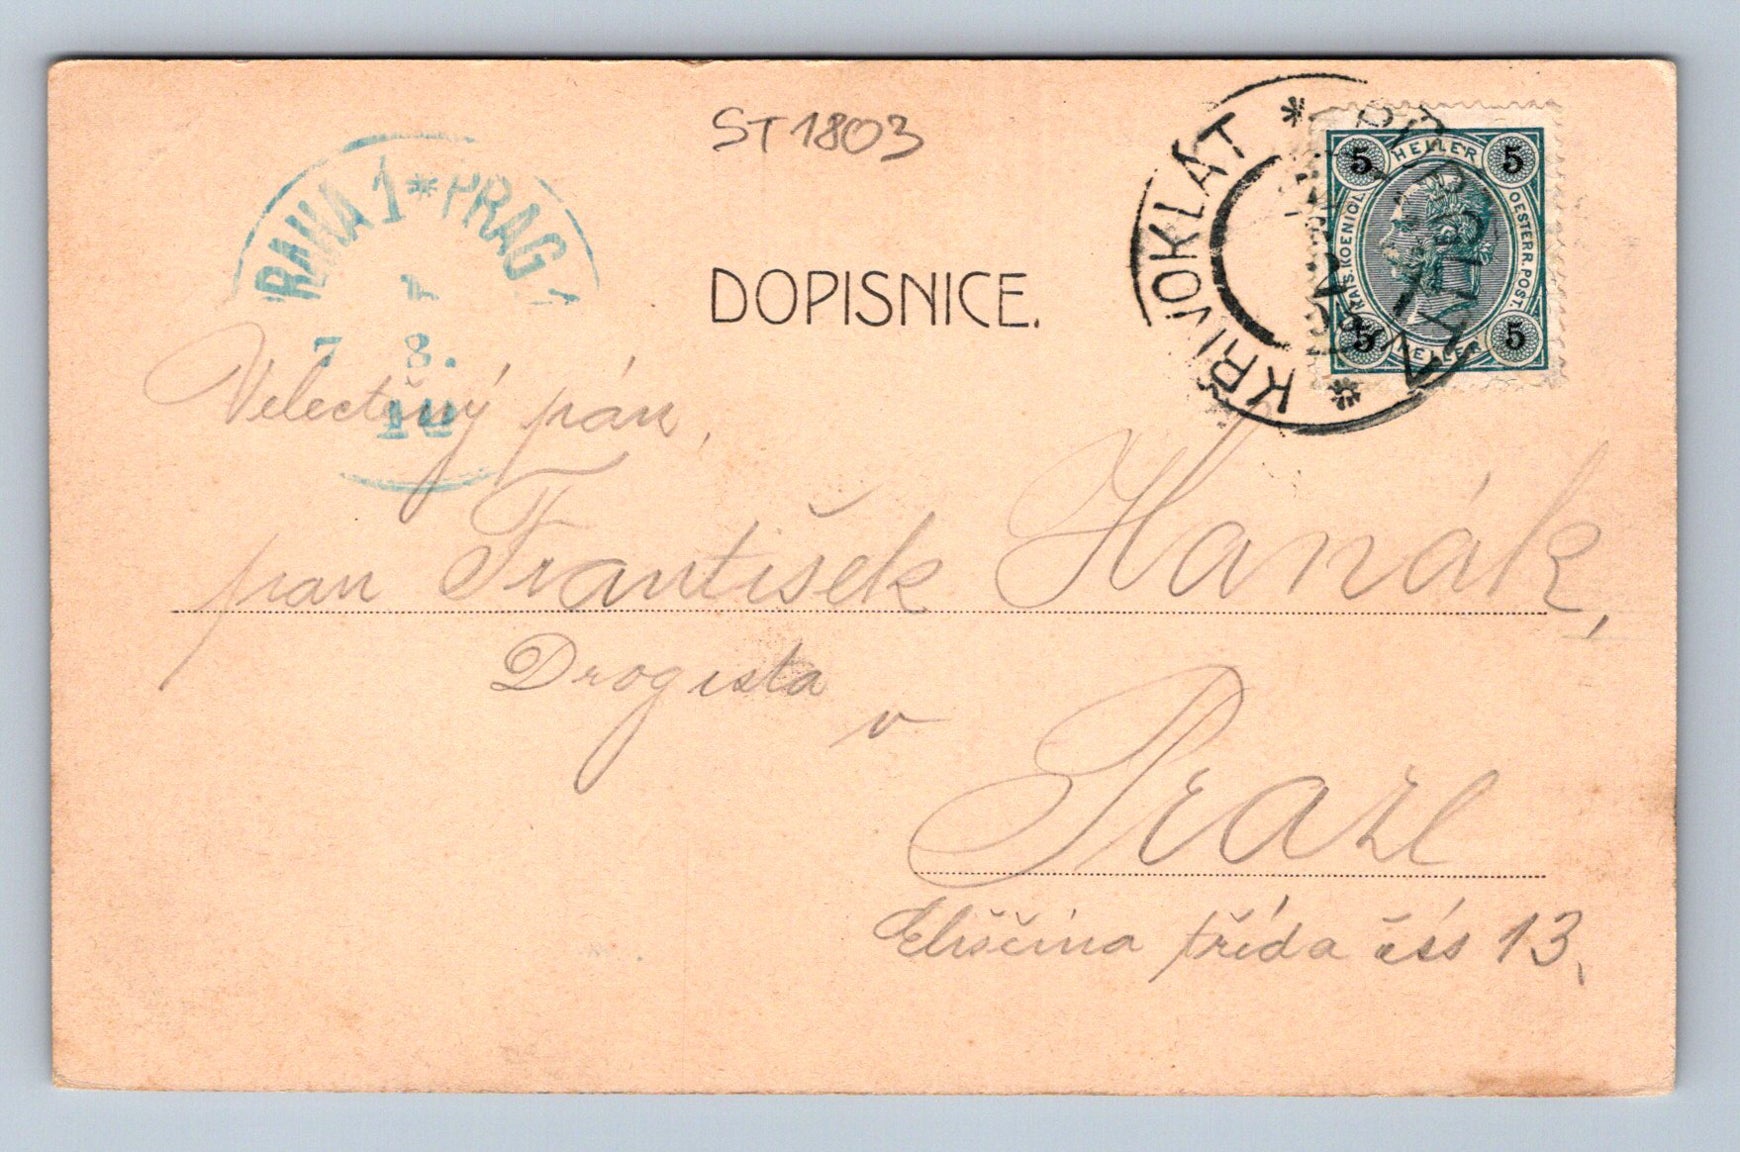 ST 1803
PRAHA 1 * PRAG
7 8.
DOPISNICE.
KŘIVOKLÁT * PÜRGLITZ *
5 HELLER 5
KAIS. KOENIGL. OESTERR. POST.
5 HELLER 5
Velectěný pán,
pan František Hanák,
Drogista
v
Praze
Eliščina třída čís 13.